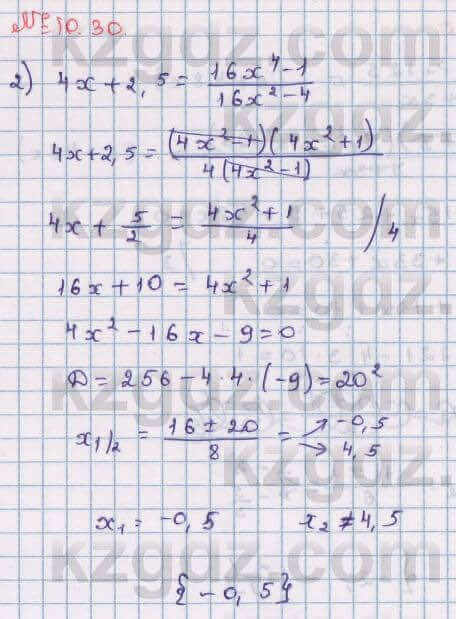 № 10.30.
2) 4x + 2,5 = (16x⁴ - 1)/(16x² - 4)
4x + 2,5 = ((4x² - 1)(4x² + 1))/(4(4x² - 1))
4x + 5/2 = (4x² + 1)/4 / 4
16x + 10 = 4x² + 1
4x² - 16x - 9 = 0
D = 256 - 4 · 4 · (-9) = 20²
x₁/₂ = (16 ± 20)/8 = → -0,5 → 4,5
x₁ = -0,5 x₂ ≠ 4,5
{-0,5}
kzgdz.com